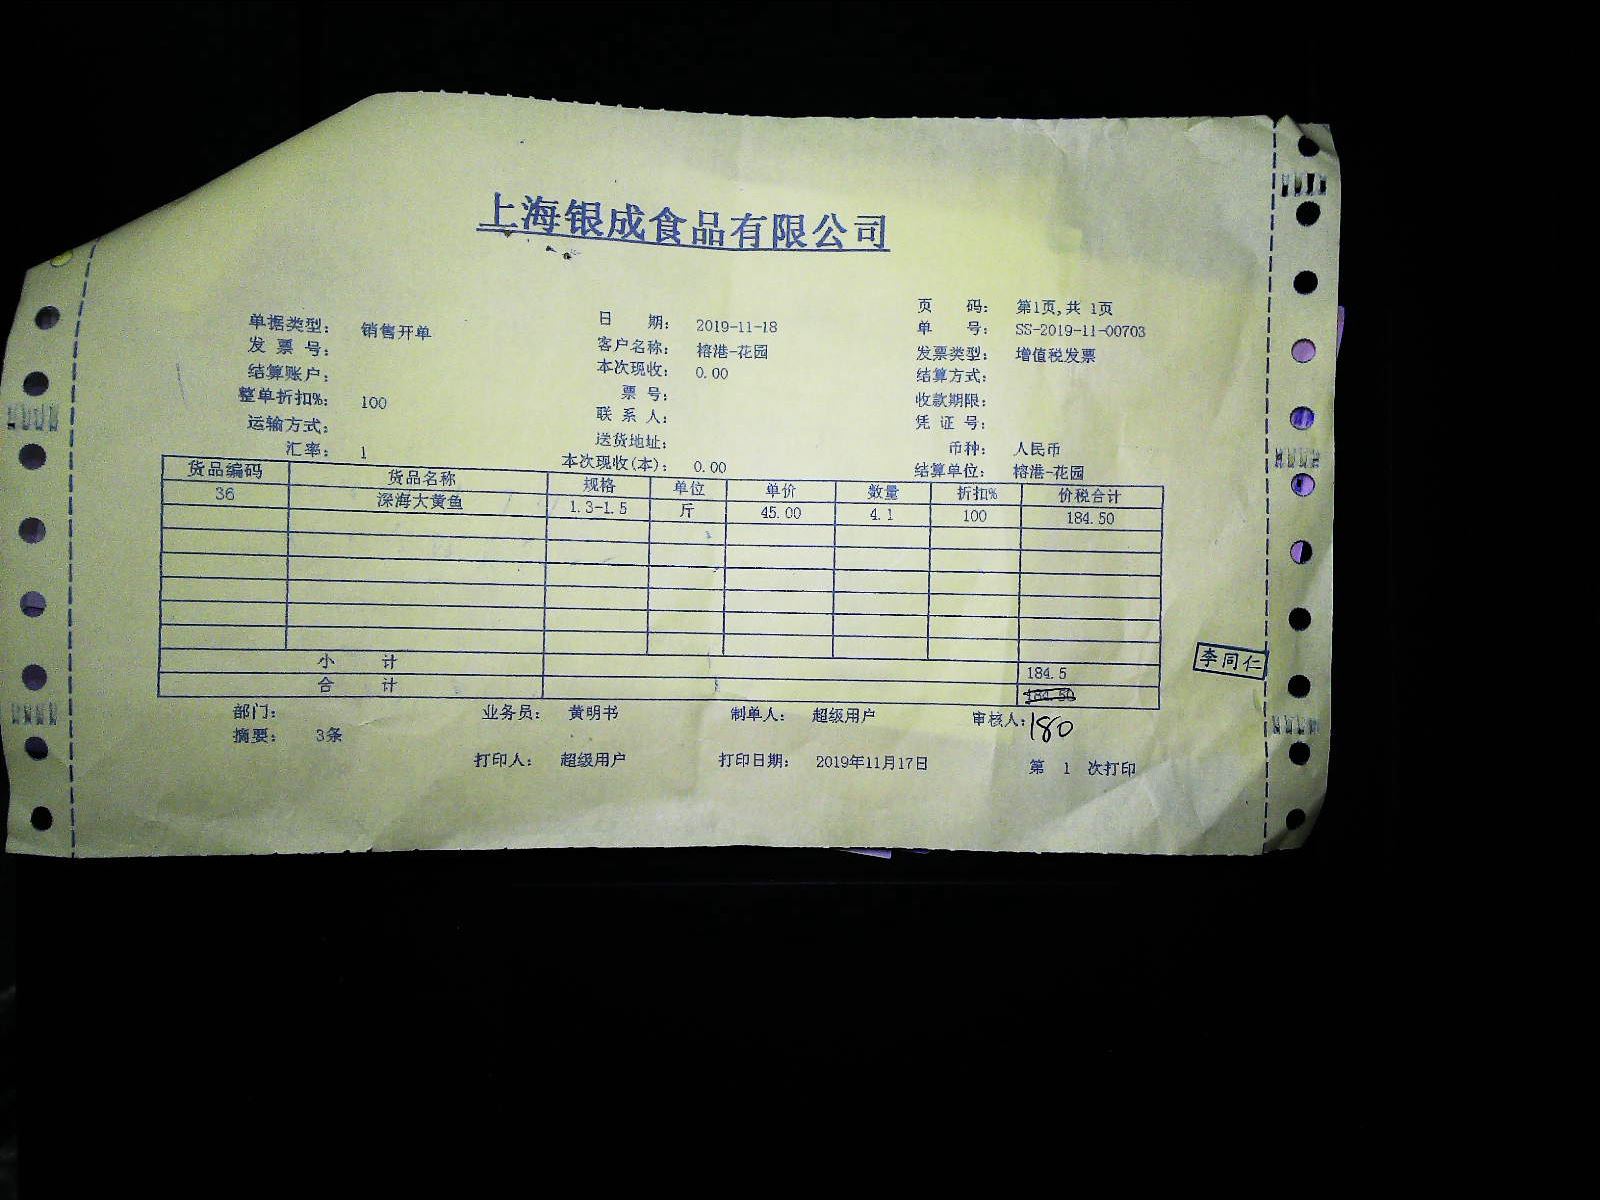 上海银成食品有限公司
页 码: 第1页,共 1页
单据类型: 销售开单 日 期: 2019-11-18 单 号: SS-2019-11-00703
发 票 号: 客户名称: 榕港-花园 发票类型: 增值税发票
结算账户: 本次现收: 0.00 结算方式:
整单折扣%: 100 票 号: 收款期限:
运输方式: 联 系 人: 凭 证 号:
汇率: 1 送货地址: 币种: 人民币
本次现收(本): 0.00 结算单位: 榕港-花园
货品编码 货品名称 规格 单位 单价 数量 折扣% 价税合计
36 深海大黄鱼 1.3-1.5 斤 45.00 4.1 100 184.50
小 计 184.5
合 计 184.50
李同仁
部门: 业务员: 黄明书 制单人: 超级用户 审核人: 180
摘要: 3条
打印人: 超级用户 打印日期: 2019年11月17日 第 1 次打印